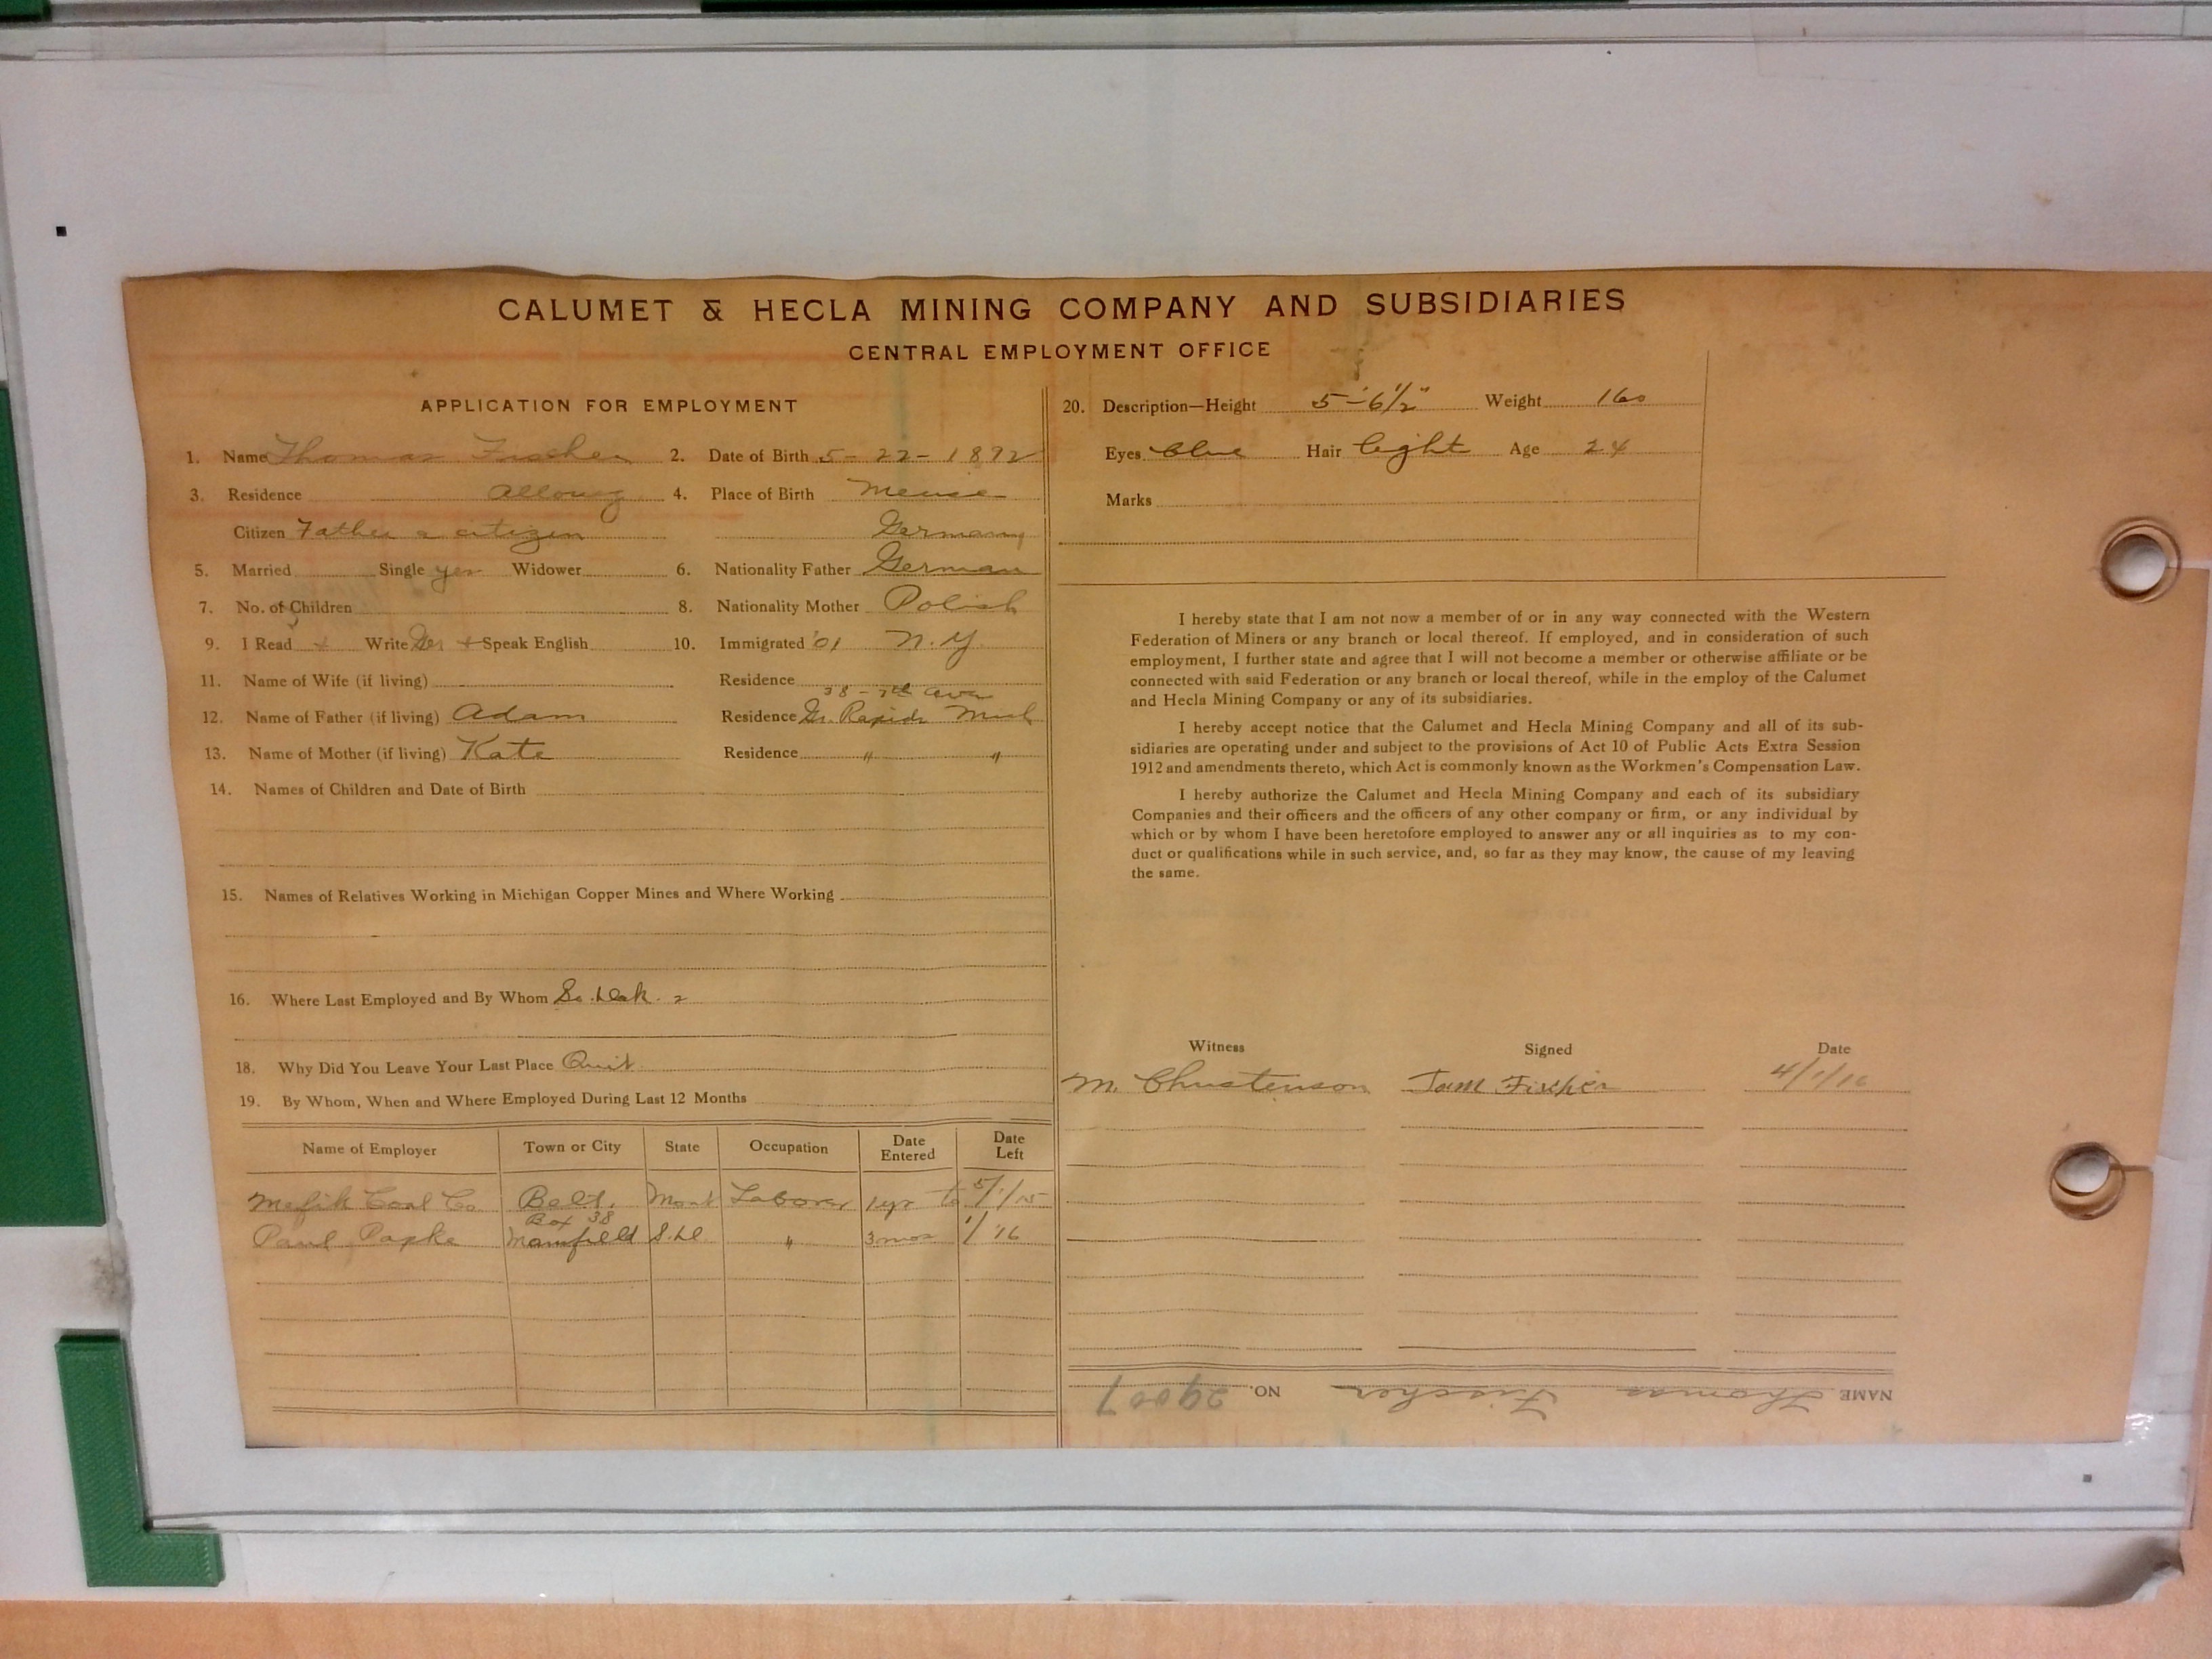 CALUMET & HECLA MINING COMPANY AND SUBSIDIARIES
CENTRAL EMPLOYMENT OFFICE
APPLICATION FOR EMPLOYMENT
1. Name Thomas Fischer 2. Date of Birth 5-22-1892
3. Residence Allouez 4. Place of Birth
Citizen Father a citizen Germany
5. Married Single yes Widower 6. Nationality Father German
7. No. of Children 8. Nationality Mother Polish
9. I Read + Write Ger + Speak English 10. Immigrated '01 N.Y.
11. Name of Wife (if living) Residence
38 - 7th Ave
12. Name of Father (if living) Adam Residence Gr. Rapids Mich
13. Name of Mother (if living) Kate Residence " "
14. Names of Children and Date of Birth
15. Names of Relatives Working in Michigan Copper Mines and Where Working
16. Where Last Employed and By Whom So. Dak.
18. Why Did You Leave Your Last Place Quit
19. By Whom, When and Where Employed During Last 12 Months
Name of Employer Town or City State Occupation Date Entered Date Left
Coal Co Belt, Mont Laborer 1 yr to 5/1/15
Box 38
Paul Papke Mansfield S.D. " 3 mos 1/'16
20. Description—Height 5-6 1/2" Weight 160
Eyes blue Hair light Age 24
Marks
I hereby state that I am not now a member of or in any way connected with the Western
Federation of Miners or any branch or local thereof. If employed, and in consideration of such
employment, I further state and agree that I will not become a member or otherwise affiliate or be
connected with said Federation or any branch or local thereof, while in the employ of the Calumet
and Hecla Mining Company or any of its subsidiaries.
I hereby accept notice that the Calumet and Hecla Mining Company and all of its sub-
sidiaries are operating under and subject to the provisions of Act 10 of Public Acts Extra Session
1912 and amendments thereto, which Act is commonly known as the Workmen's Compensation Law.
I hereby authorize the Calumet and Hecla Mining Company and each of its subsidiary
Companies and their officers and the officers of any other company or firm, or any individual by
which or by whom I have been heretofore employed to answer any or all inquiries as to my con-
duct or qualifications while in such service, and, so far as they may know, the cause of my leaving
the same.
Witness Signed Date
M. Christenson Tom Fischer 4/1/16
NAME Thomas Fischer NO. 29007